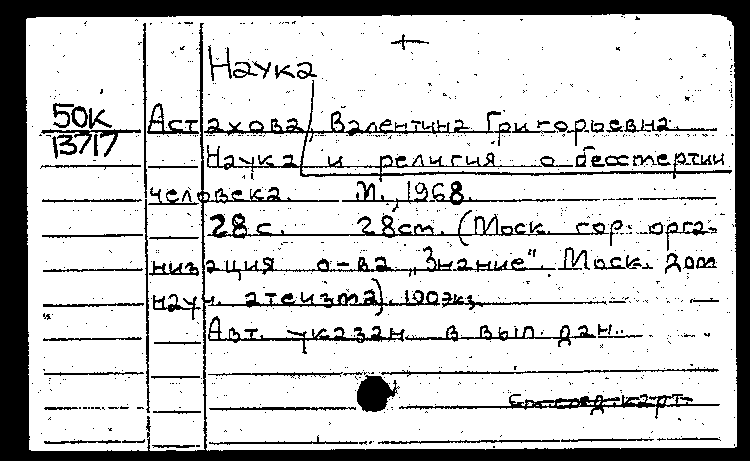 Наука
50К
13717
Астахова, Валентина Григорьевна.
Наука и религия о бессмертии
человека. М., 1968.
28 с. 28 см. (Моск. гор. орга-
низация о-ва „Знание". Моск. дом
науч. атеизма). 100 экз.
Авт. указан в вып. дан.
См. след. карт.